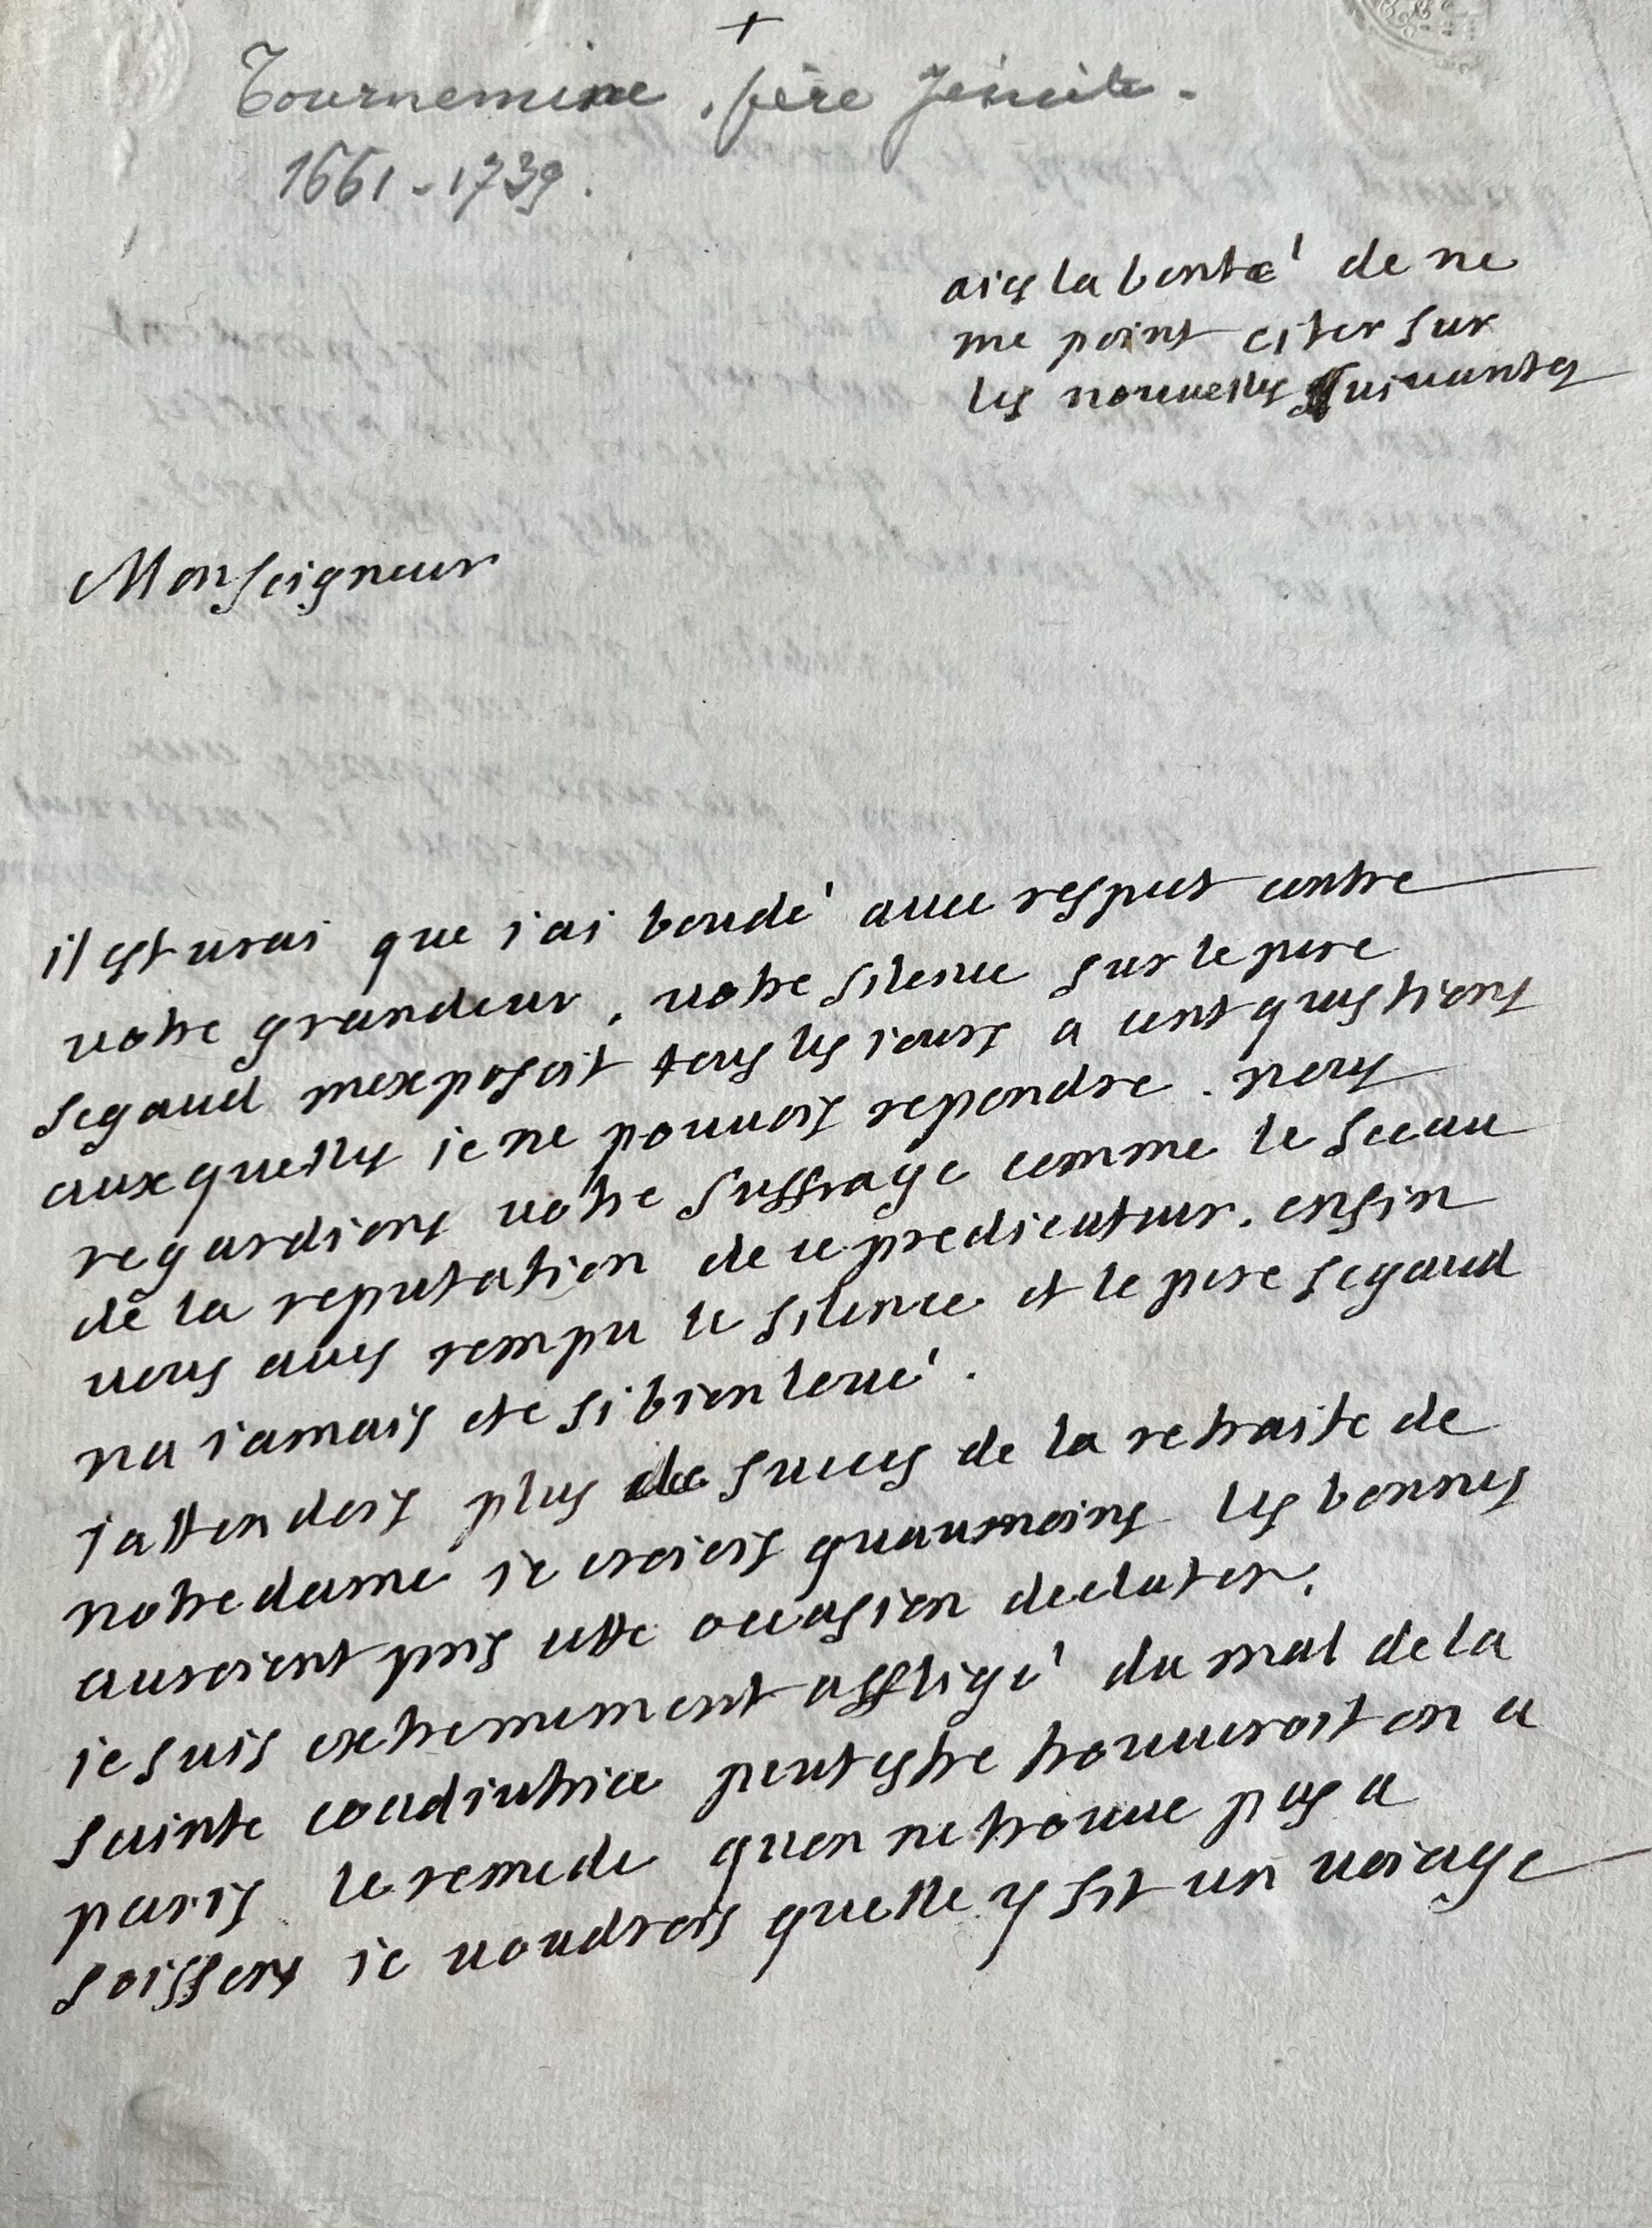 +
Tournemine, père Jésuite.
1661-1739.
aies la bonté de ne
me point citer sur
les nouuelles suiuantes
Monseigneur
il est urai que i'ai boudé auec respect contre
uotre grandeur, uotre silence sur le pere
segaud mexposoit tous les iours a cent questions
auxquelles ie ne pouuois repondre. nous
regardions uotre suffrage comme le sceau
de la reputation de ce predicateur. enfin
uous aues rompu le silence et le pere segaud
na iamais eté si bien loué.
iattendois plus de succes de la retraite de
notre dame ie croiois quaumoins les bonnes
auroient pris cette occasion declater.
ie suis extremement affligé du mal de la
sainte coadiutrice peutestre trouueroit on a
paris le remede quon ne trouue pas a
soissons ie uoudrois quelle y fit un uoiage